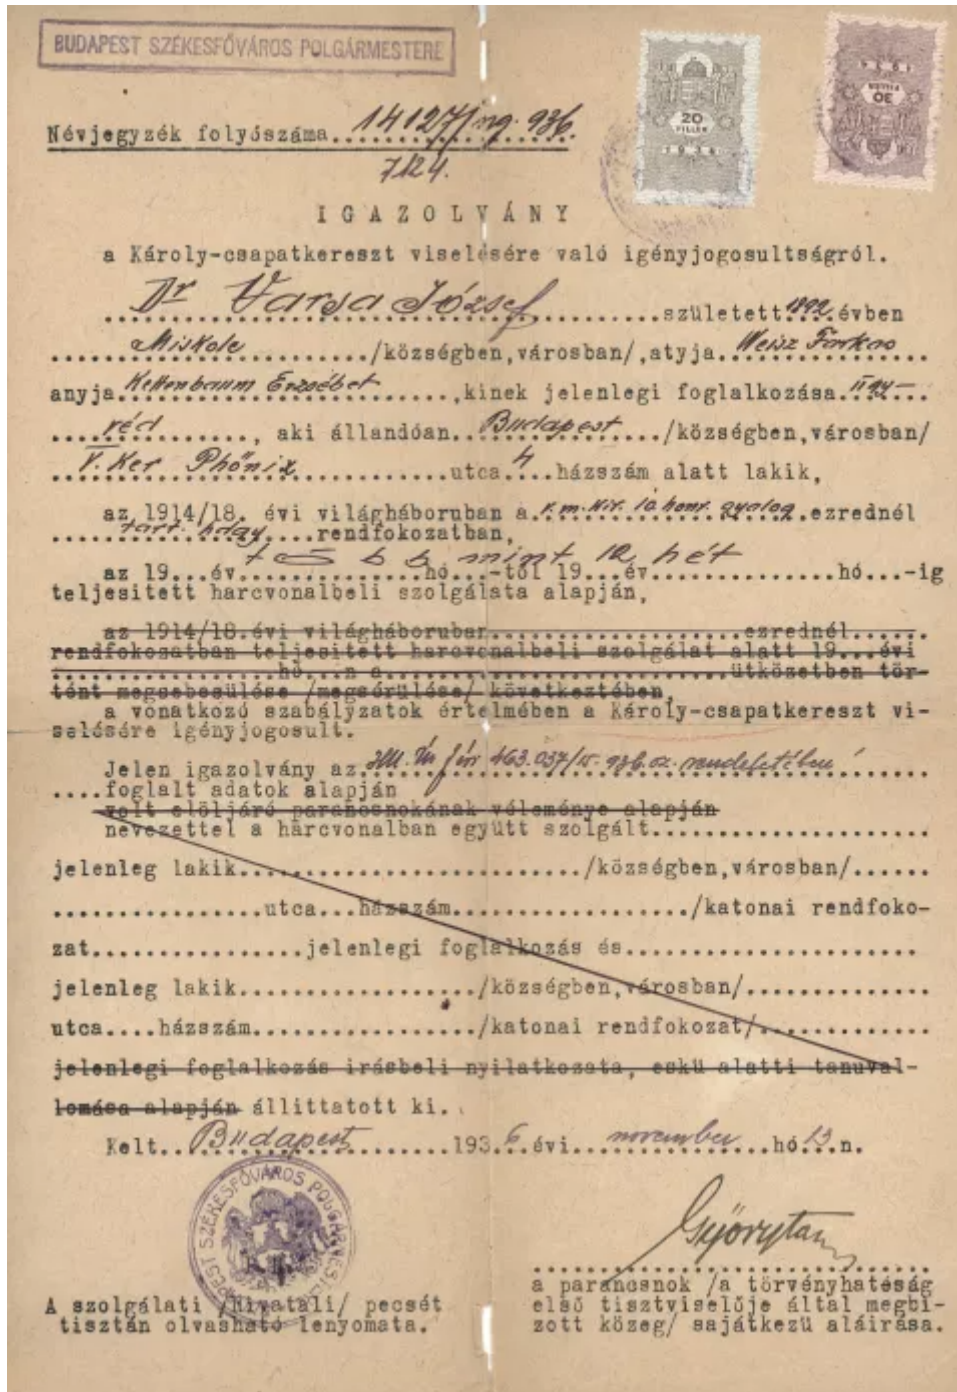 BUDAPEST SZÉKESFŐVÁROS POLGÁRMESTERE
20
FILLÉR
1934
30
FILLÉR
1934
Névjegyzék folyószáma...14127/ng.936.
7124.
IGAZOLVÁNY
a Károly-csapatkereszt viselésére való igényjogosultságról.
Dr Varga József született 1892 évben
Miskolc /községben,városban/,atyja Weisz Farkas
anyja Erzsébet ,kinek jelenlegi foglalkozása ügy-
véd , aki állandóan Budapest /községben,városban/
V. Ker Phőnix utca 4 házszám alatt lakik,
az 1914/18. évi világháboruban a v.m.kir. 10 honv. gyalog ezrednél
tart. hdgy rendfokozatban,
több mint 12 hét
az 19...év...hó...-től 19...év...hó...-ig
teljesitett harcvonalbeli szolgálata alapján,
az 1914/18.évi világháboruban...ezrednél...
rendfokozatban teljesitett harcvonalbeli szolgálat alatt 19...évi
...hó...n a...ütközetben tör-
tént megsebesülése /megsérülése/ következtében,
a vonatkozó szabályzatok értelmében a Károly-csapatkereszt vi-
selésére igényjogosult.
Jelen igazolvány az 463.037/15.936.sz. rendeletében
....foglalt adatok alapján
volt elöljáró parancsnokának véleménye alapján
nevezettel a harcvonalban együtt szolgált...
jelenleg lakik.../községben,városban/...
...utca...házszám.../katonai rendfoko-
zat...jelenlegi foglalkozás és...
jelenleg lakik.../községben,városban/...
utca....házszám.../katonai rendfokozat/...
jelenlegi foglalkozás irásbeli nyilatkozata, eskü alatti tanuval-
lomása alapján állittatott ki.
Kelt Budapest 1936 évi november hó 13 n.
BUDAPEST SZÉKESFŐVÁROS POLGÁRMESTERE
Györytam
A szolgálati /hivatali/ pecsét
tisztán olvasható lenyomata.
a parancsnok /a törvényhatóság
első tisztviselője által megbi-
zott közeg/ sajátkezü aláirása.